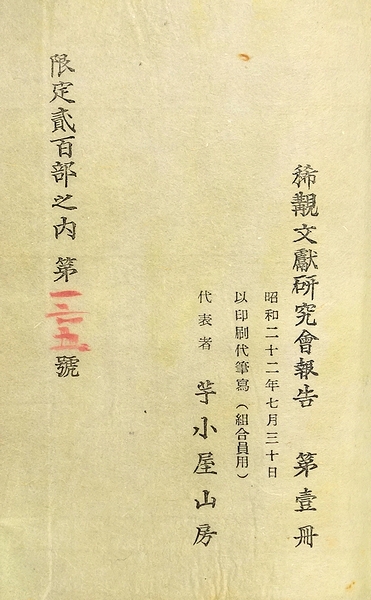 稀覯文獻研究會報告 第壹冊
昭和二十二年七月三十日
以印刷代筆寫(組合員用)
代表者 芋小屋山房
限定貳百部之内 第一三五號